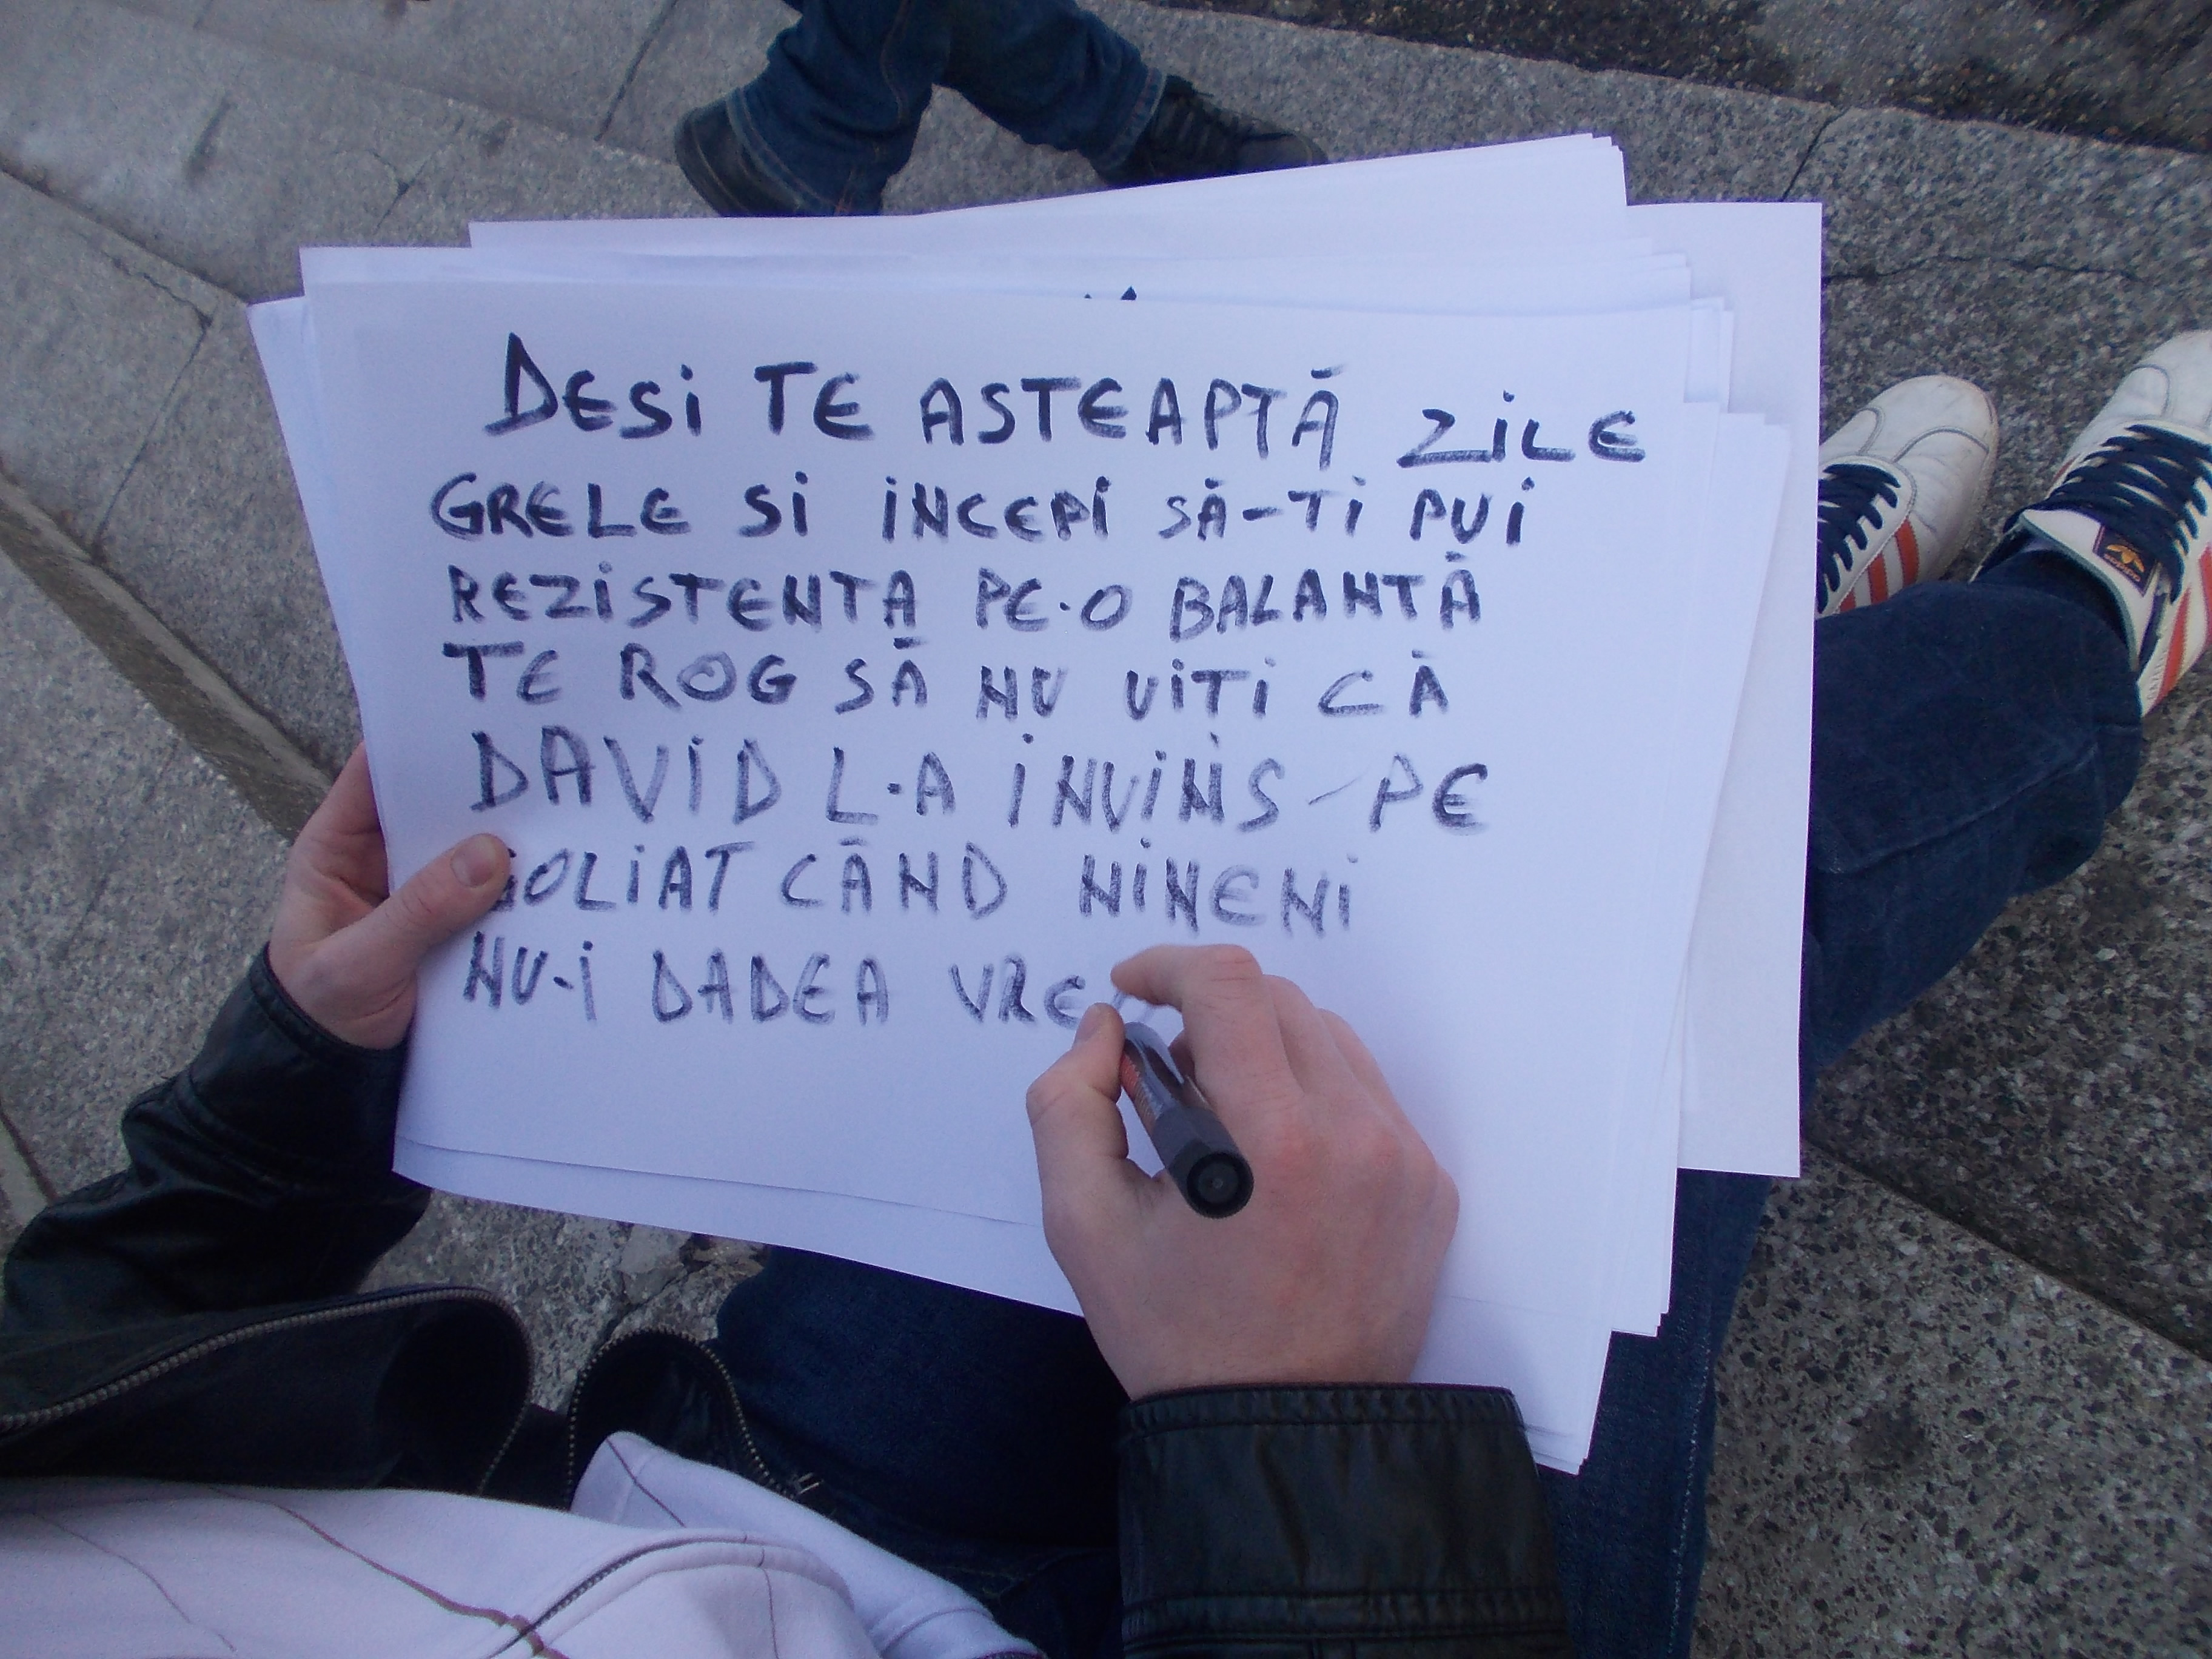 DESi TE ASTEAPTĂ ZiLE
GRELE Si iNCEPi SĂ-Ti PUi
REZiSTENTA PE-O BALANTĂ
TE ROG SĂ NU UiTi CĂ
DAViD L-A iNViNS PE
GOLiAT CÂND NiNENi
NU-i DADEA VRE